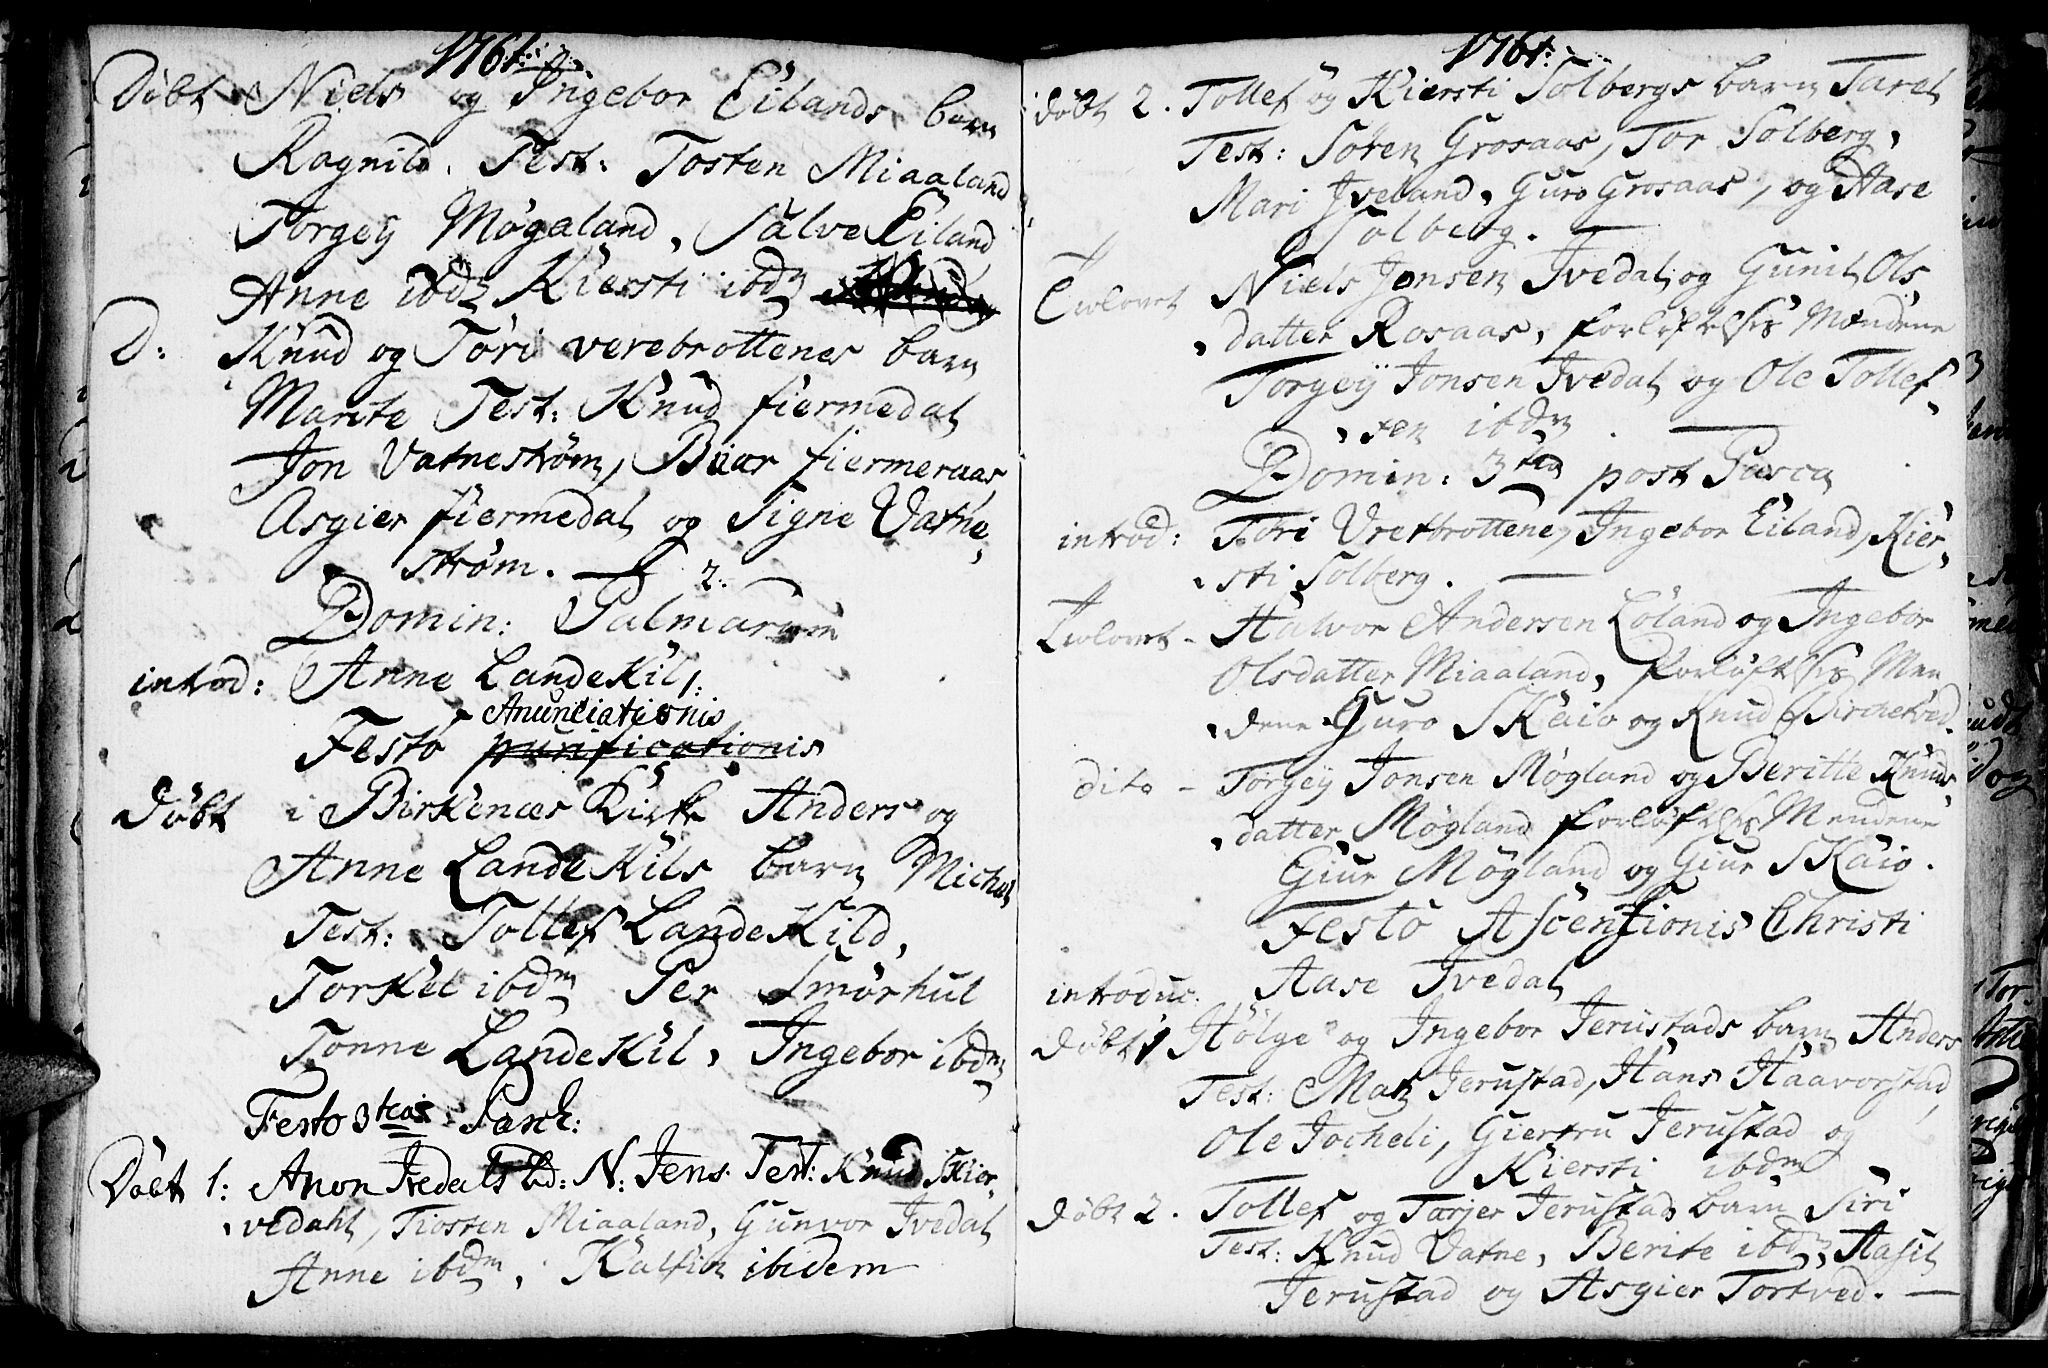 1761.
Døbt Niels og Ingebor Eilands barn
Ragnild. Test: Tosten Miaaland
Torgeÿ Møgaland, Salve Eiland
Anne ibdm Kiersti ibdm
D: Knud og Töri verebrottenes barn
Marite Test: Knud fiermedal
Jon Vatneström, Biar fiermeraas
Asgier fiermedal og Signe Vatne
ström.
Domin: Palmarum
introd: Anne LandeKil
Anunciationis
Festo purificationis
Døbt i Birkenæs Kirke Anders og
Anne LandeKils barn Michel
Test: Tollef LandeKild,
Torkel ibdm Per Smørhul
Tonne LandeKil, Ingebor ibdm
Festo 3tia Pasch:
Døbt 1: Anon Ivedals bd: N: Jens Test: Knud Skier
vedahl, Tiosten Miaaland, Gunvor Ivedal
Anne ibdm, Kalfin ibidem
1761.
døbt 2. Tollef og Kiersti Solbergs barn Tarel
Test: Sören Grosaas, Tor Solberg,
Mari Iveland, Guro Grosaas, og Aase
Solberg.
Trolovet Niels Jonsen Ivedal og Gunil Ols
datter Rosaas, forløfelses Mændene
Torgeÿ Jonsen Ivedal og Ole Tollef
sen ibdm
Domin: 3tia post Pasca
introd: Töri Vrerbrottene, Ingebor Eiland, Kier
sti Solberg.
Trolovet - Halvor Andersen Löland og Ingebor
Olsdatter Miaaland, forløftelses Men
dene Guro SKaio og Knud Birchetved.
dito - Torgeÿ Jonsen Møgland og Beritte Knuds
datter Møgland forløfelses Mendene
Giur Møgland og Giur SKaio.
Festo Ascensionis Christi
introduc: Aase Ivedal
døbt 1 Hølge og Ingebor Jerustads barn Anders
Test: Mats Jerustad, Hans Haavorstad,
Ole Jocheli, Giertru Jerustad og
Kiersti ibdm
døbt 2. Tollef og Tarjer Jerustads barn Siri
Test: Knud Vatne, Berite ibdm, Aasil
Jerustad og Asgier Tortved.